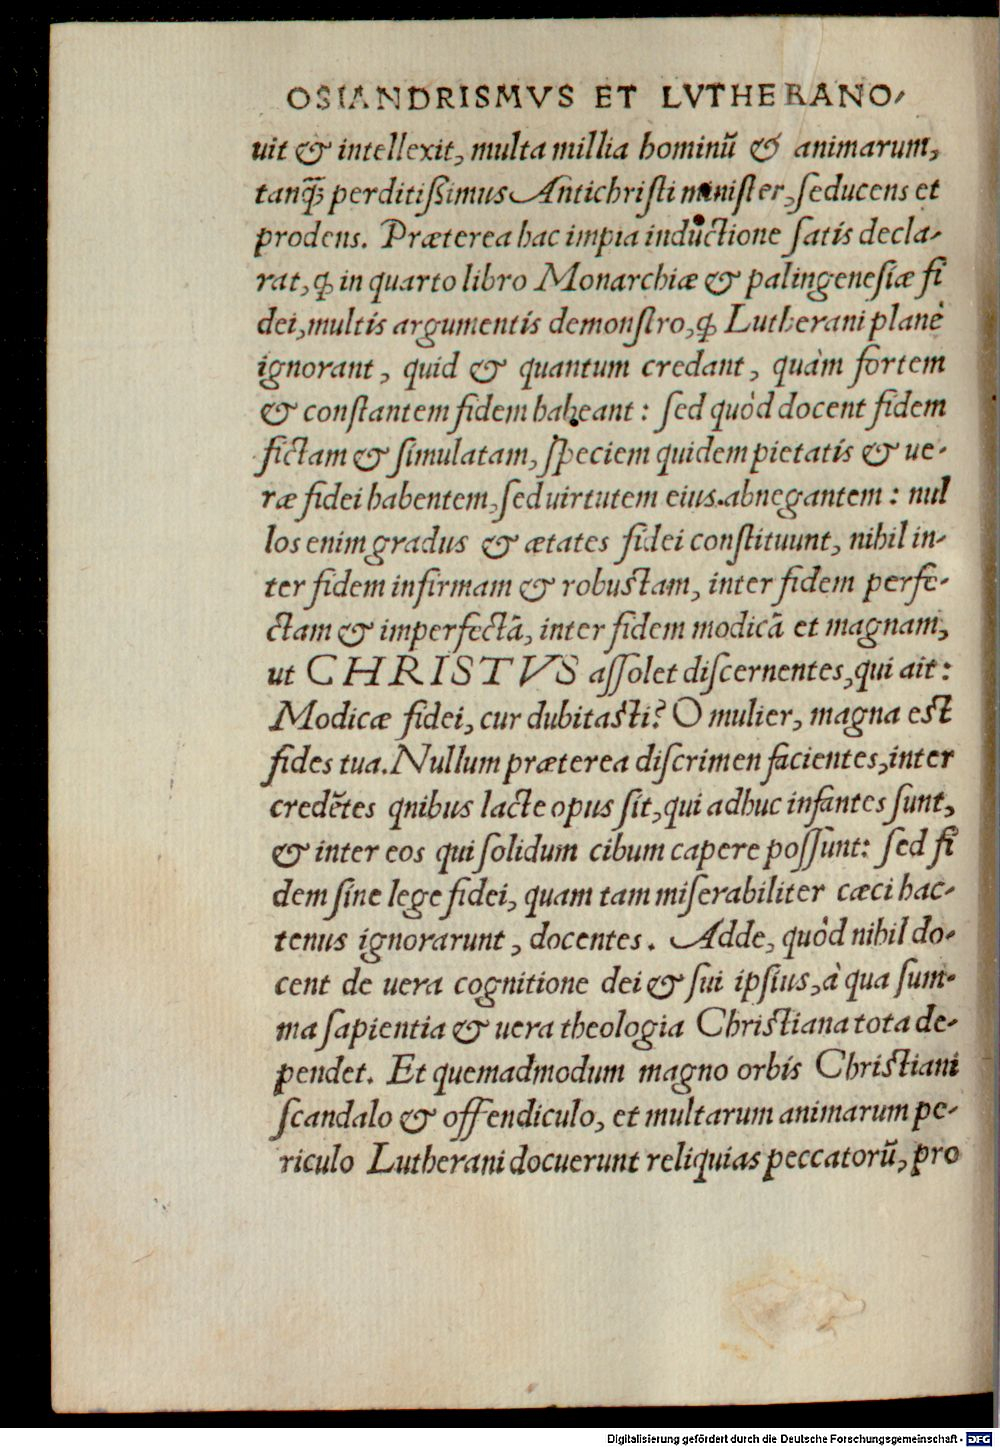 OSIANDRISMVS ET LVTHERANO-
uit & intellexit, multa millia hominū & animarum,
tanq̄ꝫ perditißimus Antichristi minister, seducens et
prodens. Præterea hac impia inductione satis decla-
rat, ꝙ in quarto libro Monarchiæ & palingenesiæ fi
dei, multis argumentis demonstro, ꝙ Lutherani planè
ignorant, quid & quantum credant, quàm fortem
& constantem fidem habeant: sed quòd docent fidem
fictam & simulatam, speciem quidem pietatis & ue-
ræ fidei habentem, sed uirtutem eius abnegantem: nul
los enim gradus & ætates fidei constituunt, nihil in-
ter fidem infirmam & robustam, inter fidem perfe-
ctam & imperfectā, inter fidem modicā et magnam,
ut CHRISTVS assolet discernentes, qui ait:
Modicæ fidei, cur dubitasti? O mulier, magna est
fides tua. Nullum præterea discrimen facientes, inter
credētes qnibus lacte opus sit, qui adhuc infantes sunt,
& inter eos qui solidum cibum capere possunt: sed fi
dem sine lege fidei, quam tam miserabiliter cæci hac-
tenus ignorarunt, docentes. Adde, quòd nihil do-
cent de uera cognitione dei & sui ipsius, à qua sum-
ma sapientia & uera theologia Christiana tota de-
pendet. Et quemadmodum magno orbis Christiani
scandalo & offendiculo, et multarum animarum pe-
riculo Lutherani docuerunt reliquias peccatorū, pro
Digitalisierung gefördert durch die Deutsche Forschungsgemeinschaft - DFG